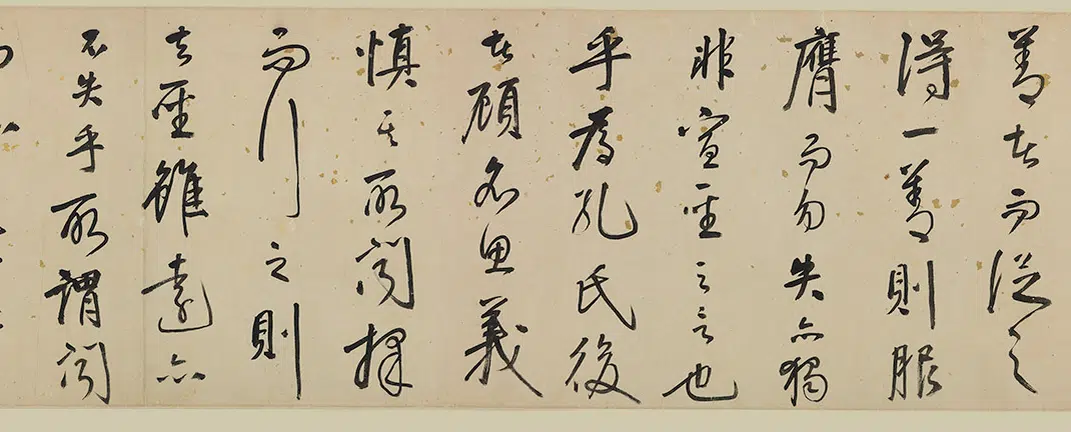 善者而從之
得一善則服
膺而勿失亦獨
非宣聖之言也
乎為孔氏後
者顧名思義
慎其所聞擇
而行之則
去聖雖遠亦
不失乎所謂聞